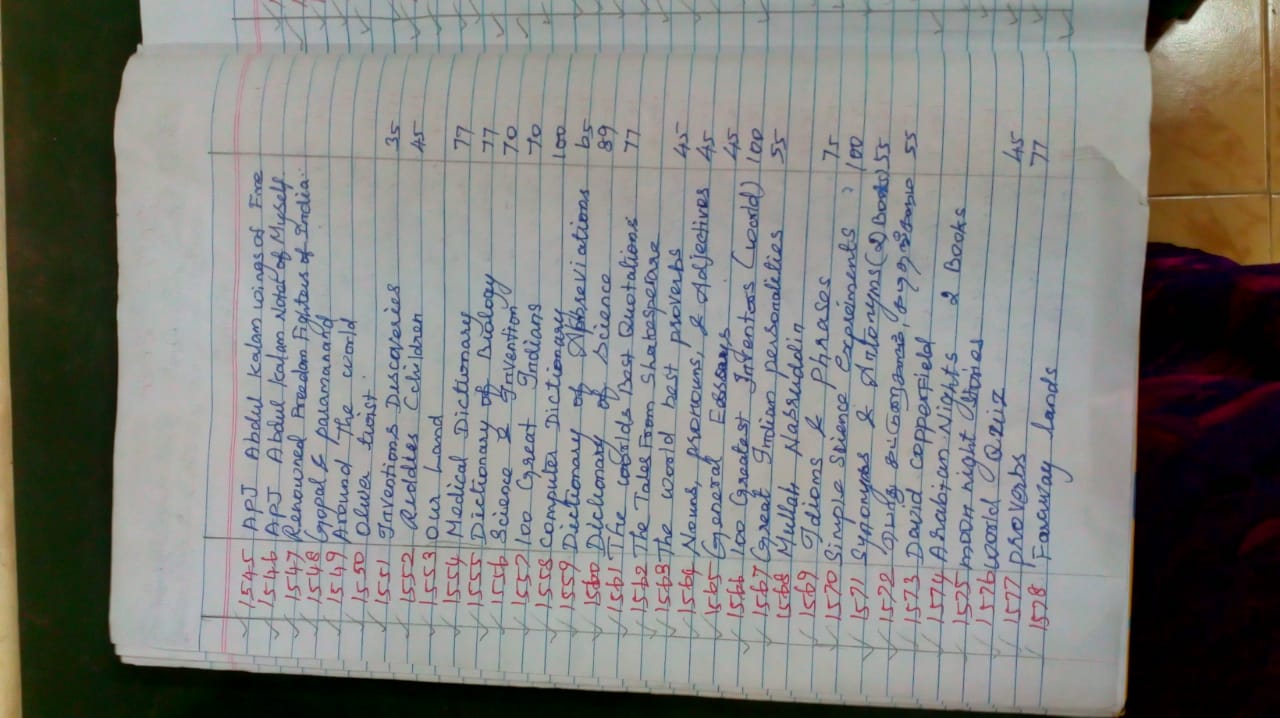 1545 APJ Abdul Kalam wings of Fire
1546 APJ Abdul Kalam Notes of Myself
1547 Renouned Freedom Fighters of India.
1548 Gopal & paramanand
1549 Around The world
1550 Oliver twist
1551 Inventions Discoveries 35
1552 Ruddies Children 45
1553 Our Land
1554 Medical Dictionary 77
1555 Dictionary of Biology 77
1556 Science & Invention 70
1557 100 Great Indians 70
1558 Computer Dictionary 100
1559 Dictionary of Abbreviations 65
1560 Dictionary of Science 89
1561 The worlds Best Quotations 77
1562 The Tales From Shakesperare
1563 The world best proverbs 45
1564 Nouns, pronouns, & Adjectives 45
1565 General Essays 45
1566 100 Greatest Inventors (world) 100
1567 Great Indian personalities 55
1568 Mullah Nasruddin
1569 Idioms & Phrases 75
1570 Simple Science Experiments 100
1571 Synonyms & Antonyms (2) Books 55
1572 55
1573 David copperfield
1574 Arabian Nights 2 Books
1575 moon night Stories
1576 World Quiz
1577 proverbs 45
1578 Faraway lands 77